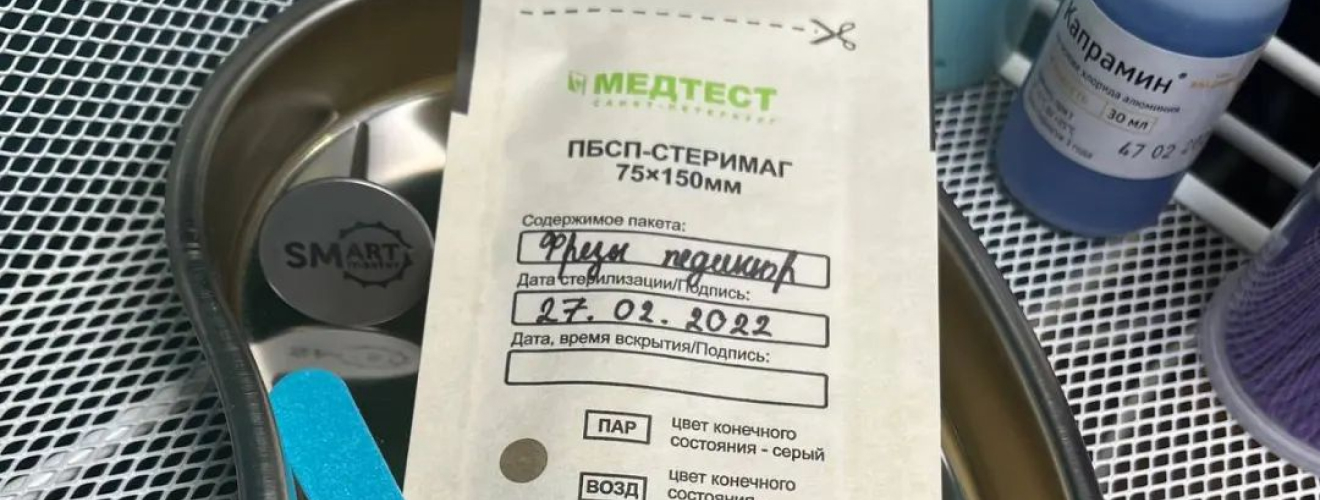 МЕДТЕСТ
САНКТ-ПЕТЕРБУРГ
ПБСП-СТЕРИМАГ
75×150мм
Содержимое пакета:
Фрезы педикюр
Дата стерилизации/Подпись:
27. 02. 2022
Дата, время вскрытия/Подпись:
ПАР
цвет конечного
состояния - серый
ВОЗД
цвет конечного
состояния
SMART
master
Капрамин®
хлорида алюминия
30 мл
47 02